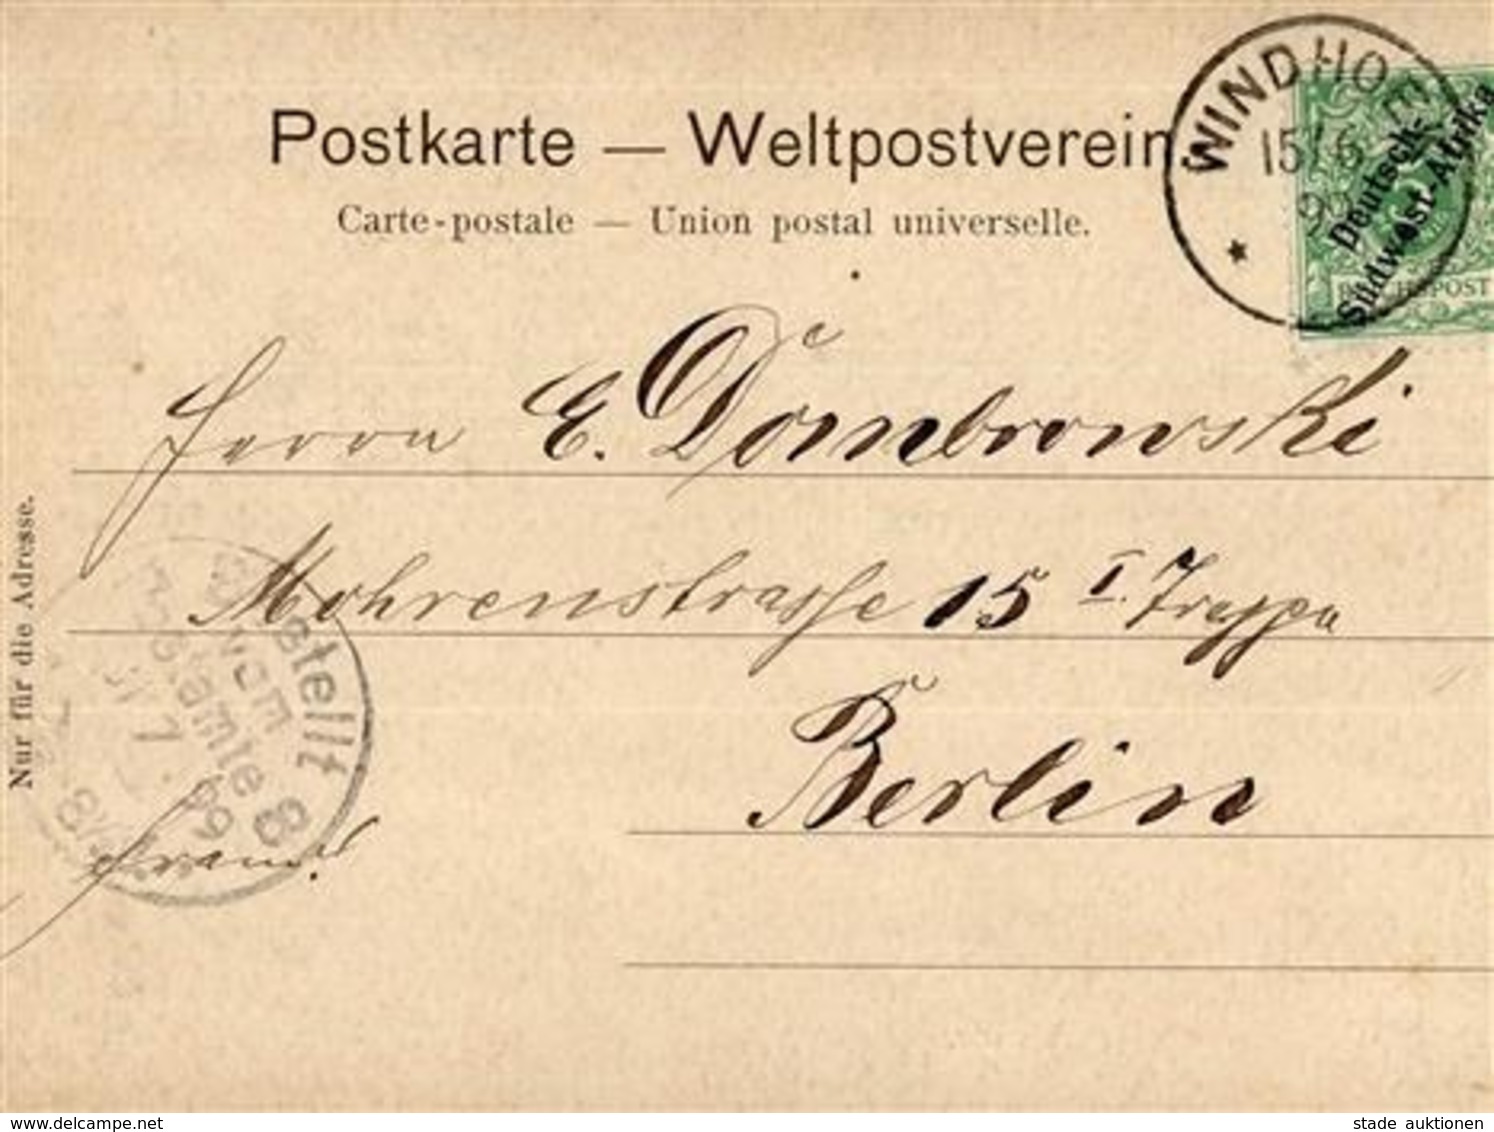 Postkarte — Weltpostverein.
Carte-postale — Union postal universelle.
WINDHOEK
15/6
99
Deutsch-
Südwest-Afrika
REICHSPOST
5
Herrn E. Dombrowski
Mohrenstrasse 15 I. Treppe
Berlin
Nur für die Adresse.
Bestellt
vom
Postamte 8
99
delcampe.net
stade auktionen